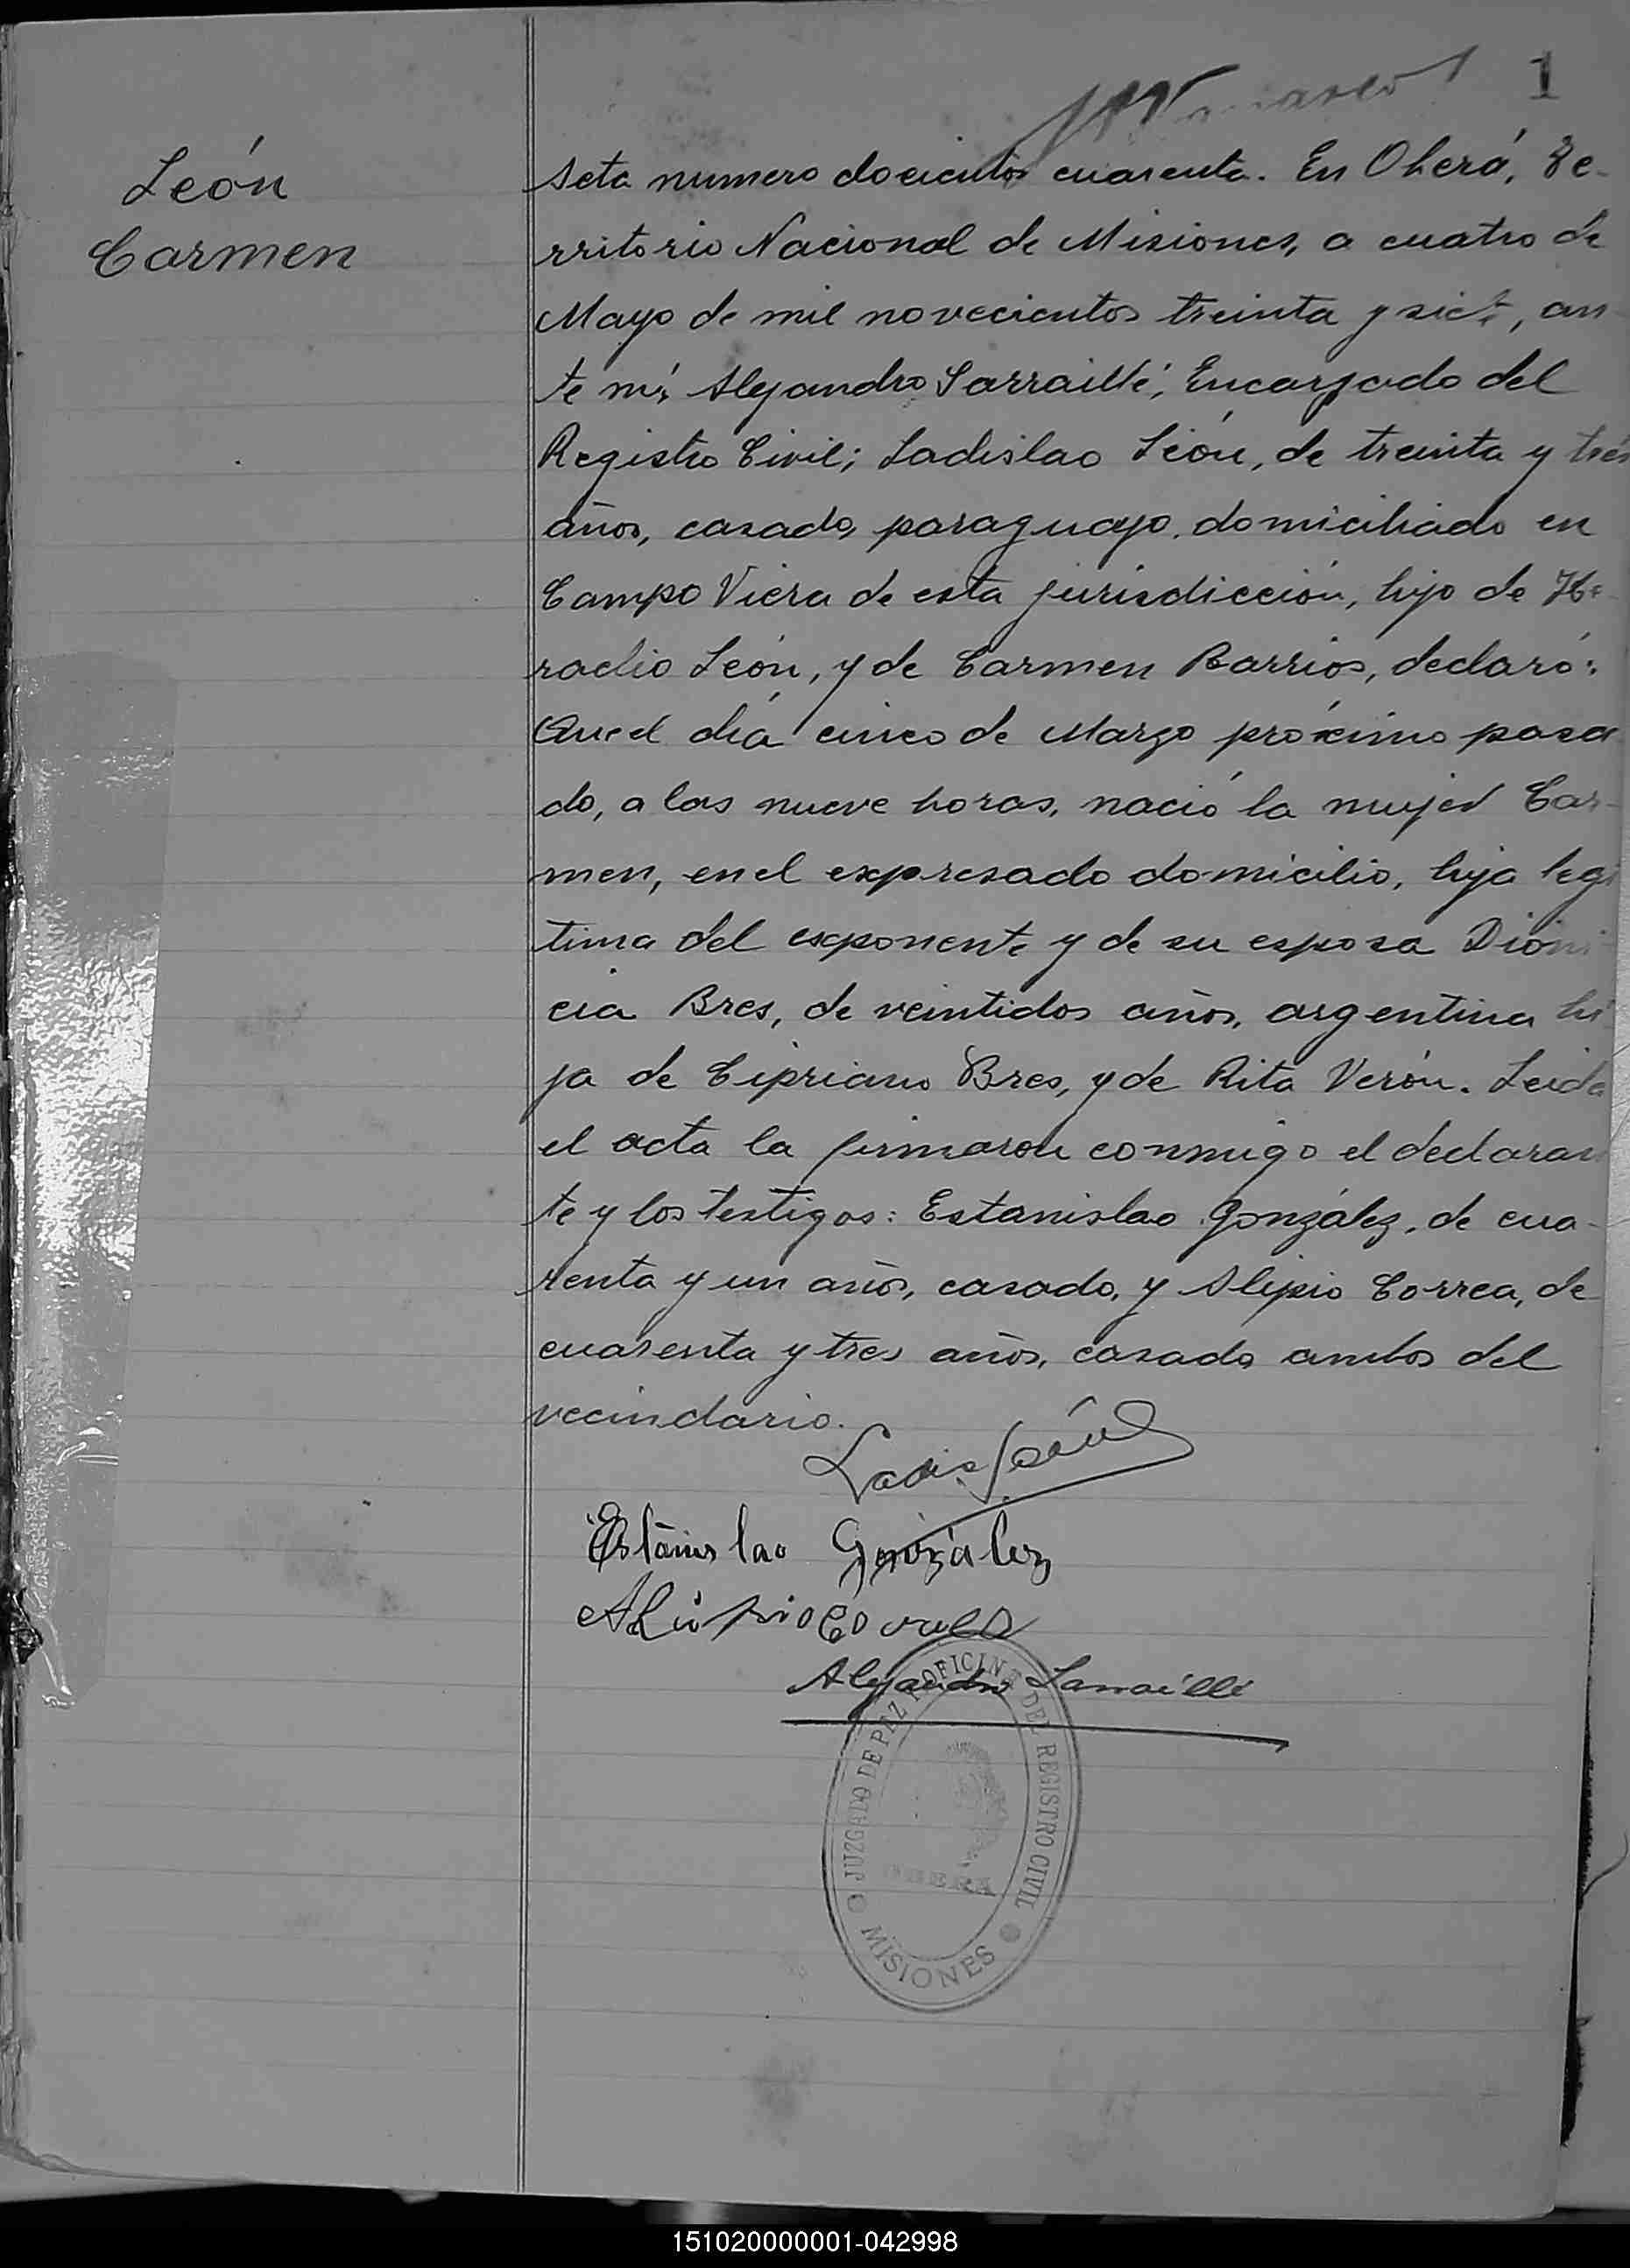 1
León
Carmen
Acta numero docientos cuarenta. En Oberá, Te-
rritorio Nacional de Misiones, a cuatro de
Mayo de mil novecientos treinta y siete, an
te mí, Alejandro Sarraillé, Encargado del
Registro Civil; Ladislao León, de treinta y tres
años, casado, paraguayo, domiciliado en
Campo Viera de esta jurisdicción, hijo de He-
raclio León, y de Carmen Barrios, declaró:
Que el día cinco de Marzo próximo pasa
do, a las nueve horas, nació la mujer Car-
men, en el expresado domicilio, hija legí
tima del exponente y de su esposa Dioni
cia Bres, de veintidos años, argentina hi
ja de Cipriano Bres, y de Rita Verón. Leida
el acta la firmaron conmigo el declaran
te y los testigos: Estanislao González, de cua-
renta y un años, casado, y Alipio Correa, de
cuarenta y tres años, casado ambos del
vecindario.
Ladis León
Estanislao González
Alipio Correa
Alejandro Sarraillé
JUZGADO DE PEZ Y OFICINA DEL REGISTRO CIVIL
OBERA
MISIONES
151020000001-042998